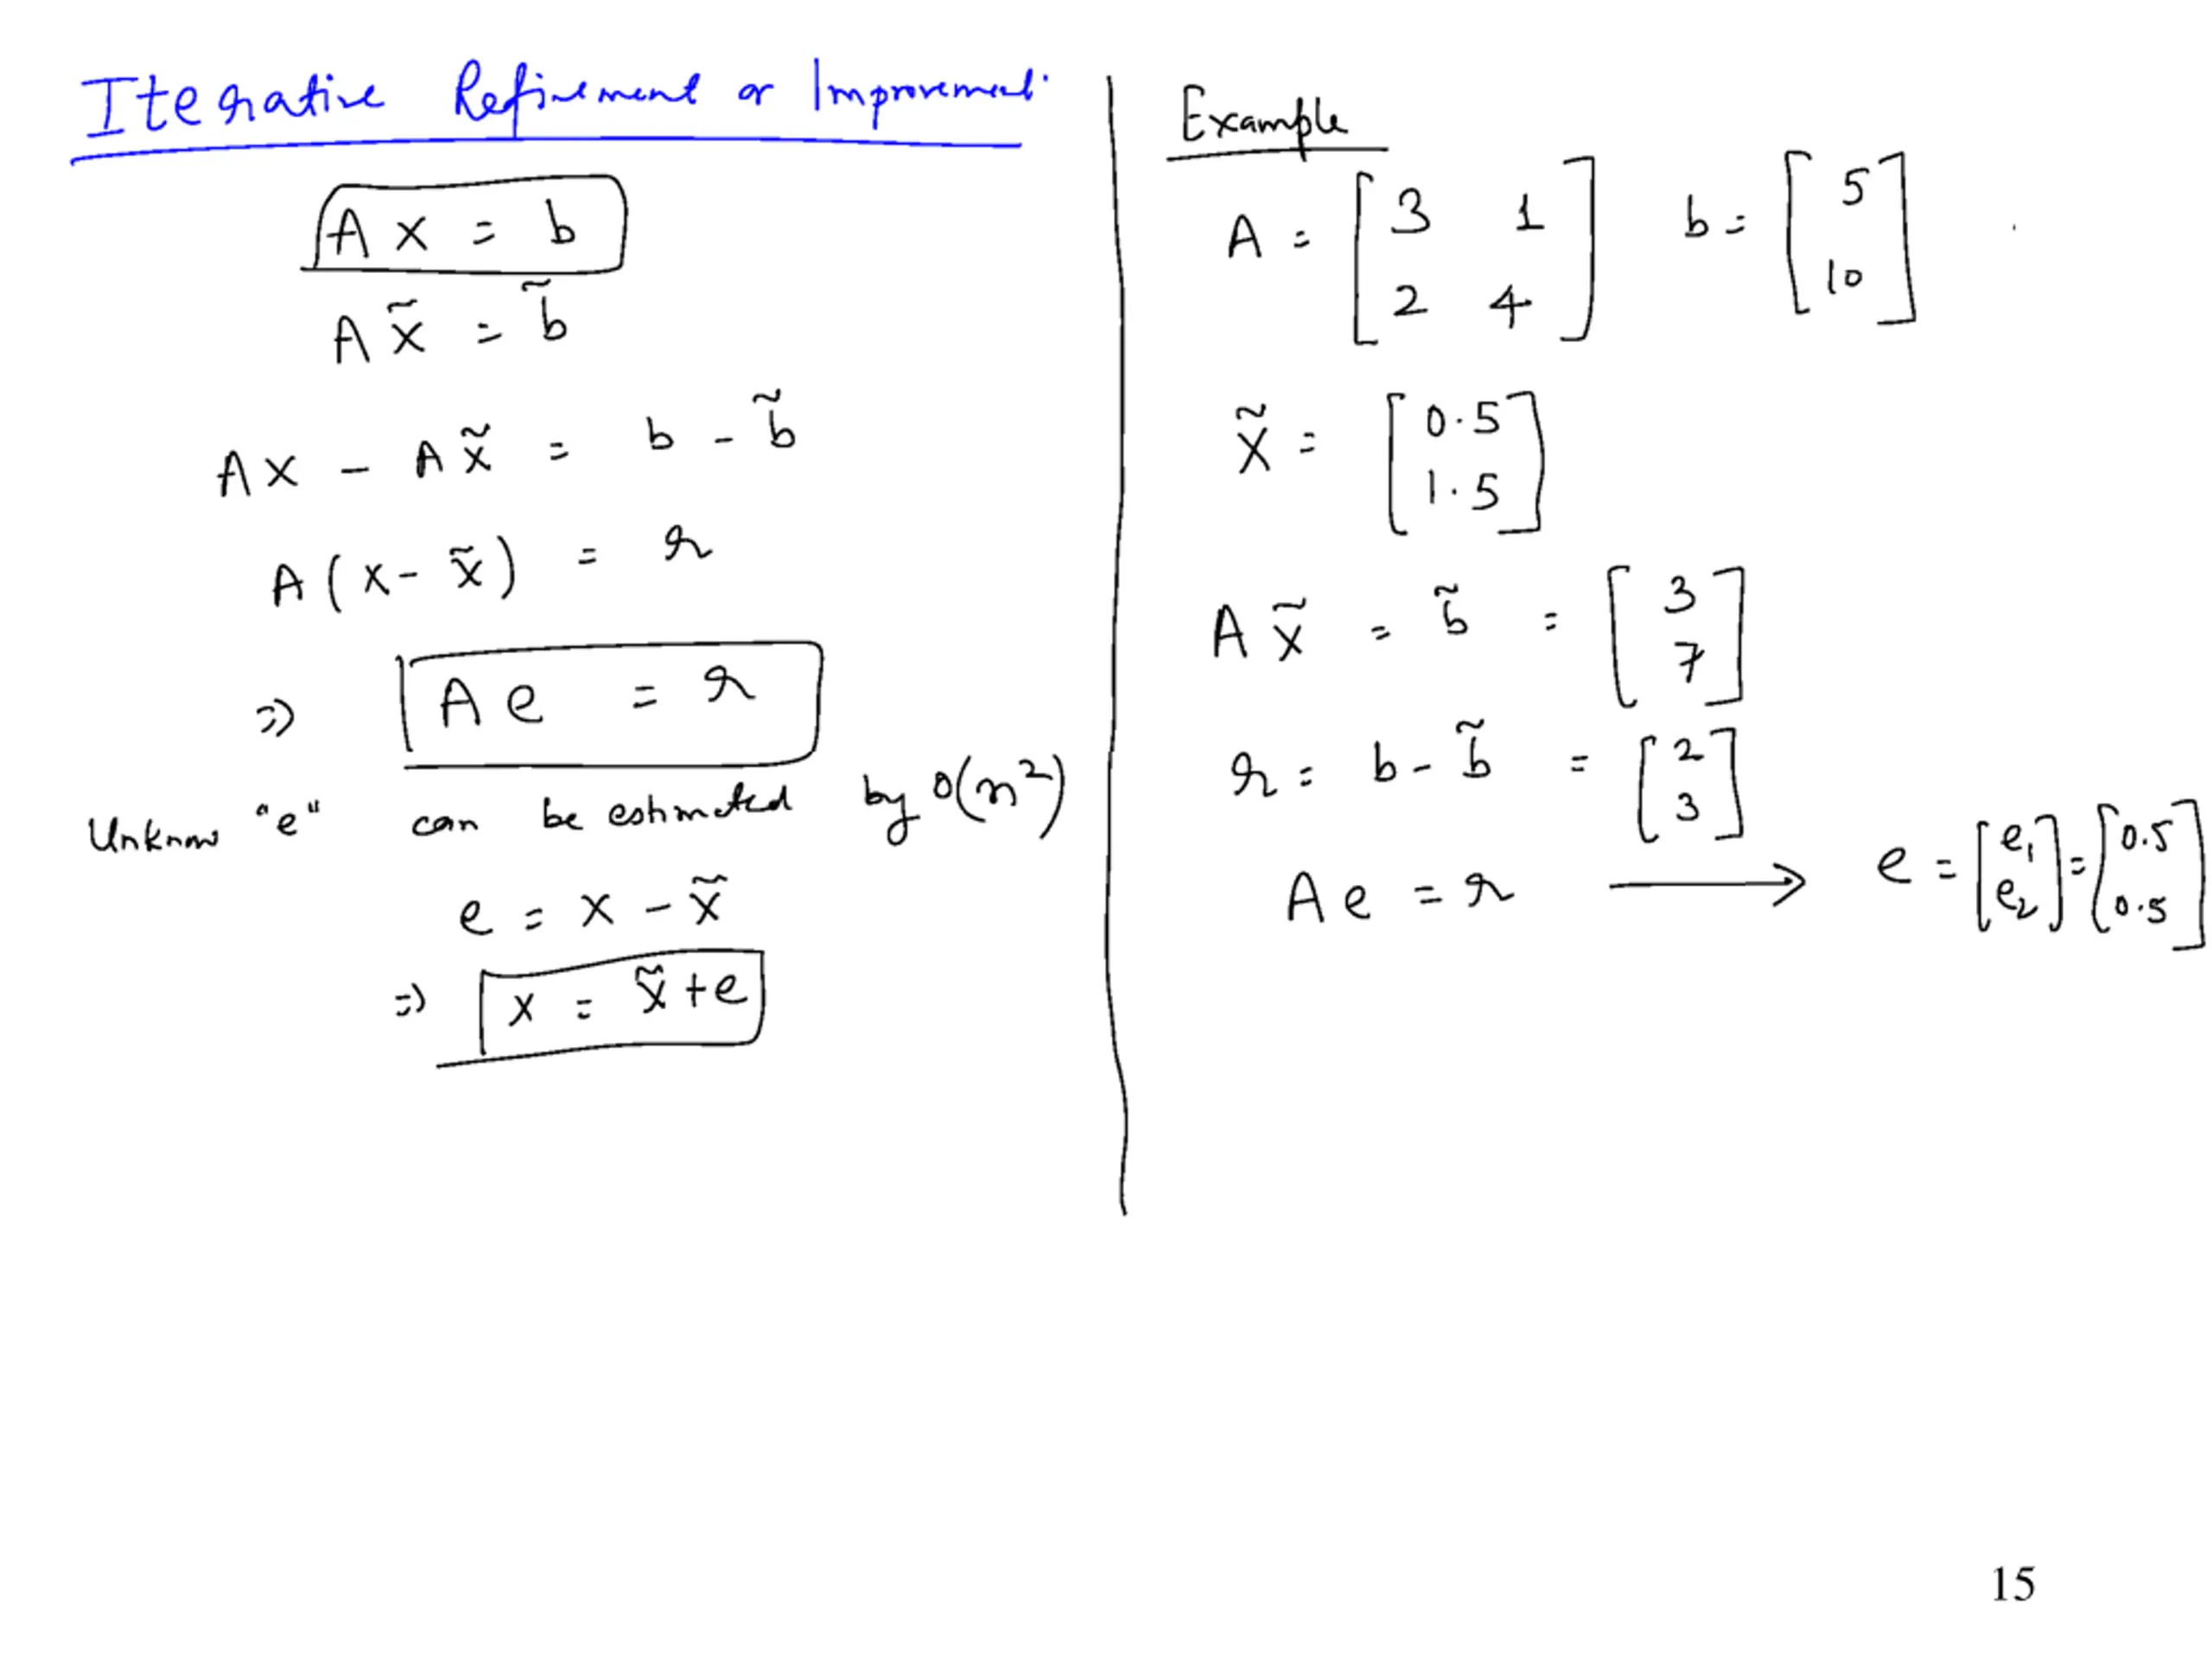 Iterative Refinement or Improvement.
A x = b
A x̃ = b̃
Ax - A x̃ = b - b̃
A(x - x̃) = r
⇒ A e = r
Unknown "e" can be estimated by O(n²)
e = x - x̃
⇒ x = x̃ + e
Example
A = [3 1; 2 4] b = [5; 10]
x̃ = [0.5; 1.5]
A x̃ = b̃ = [3; 7]
r = b - b̃ = [2; 3]
A e = r ⟶ e = [e₁; e₂] = [0.5; 0.5]
15